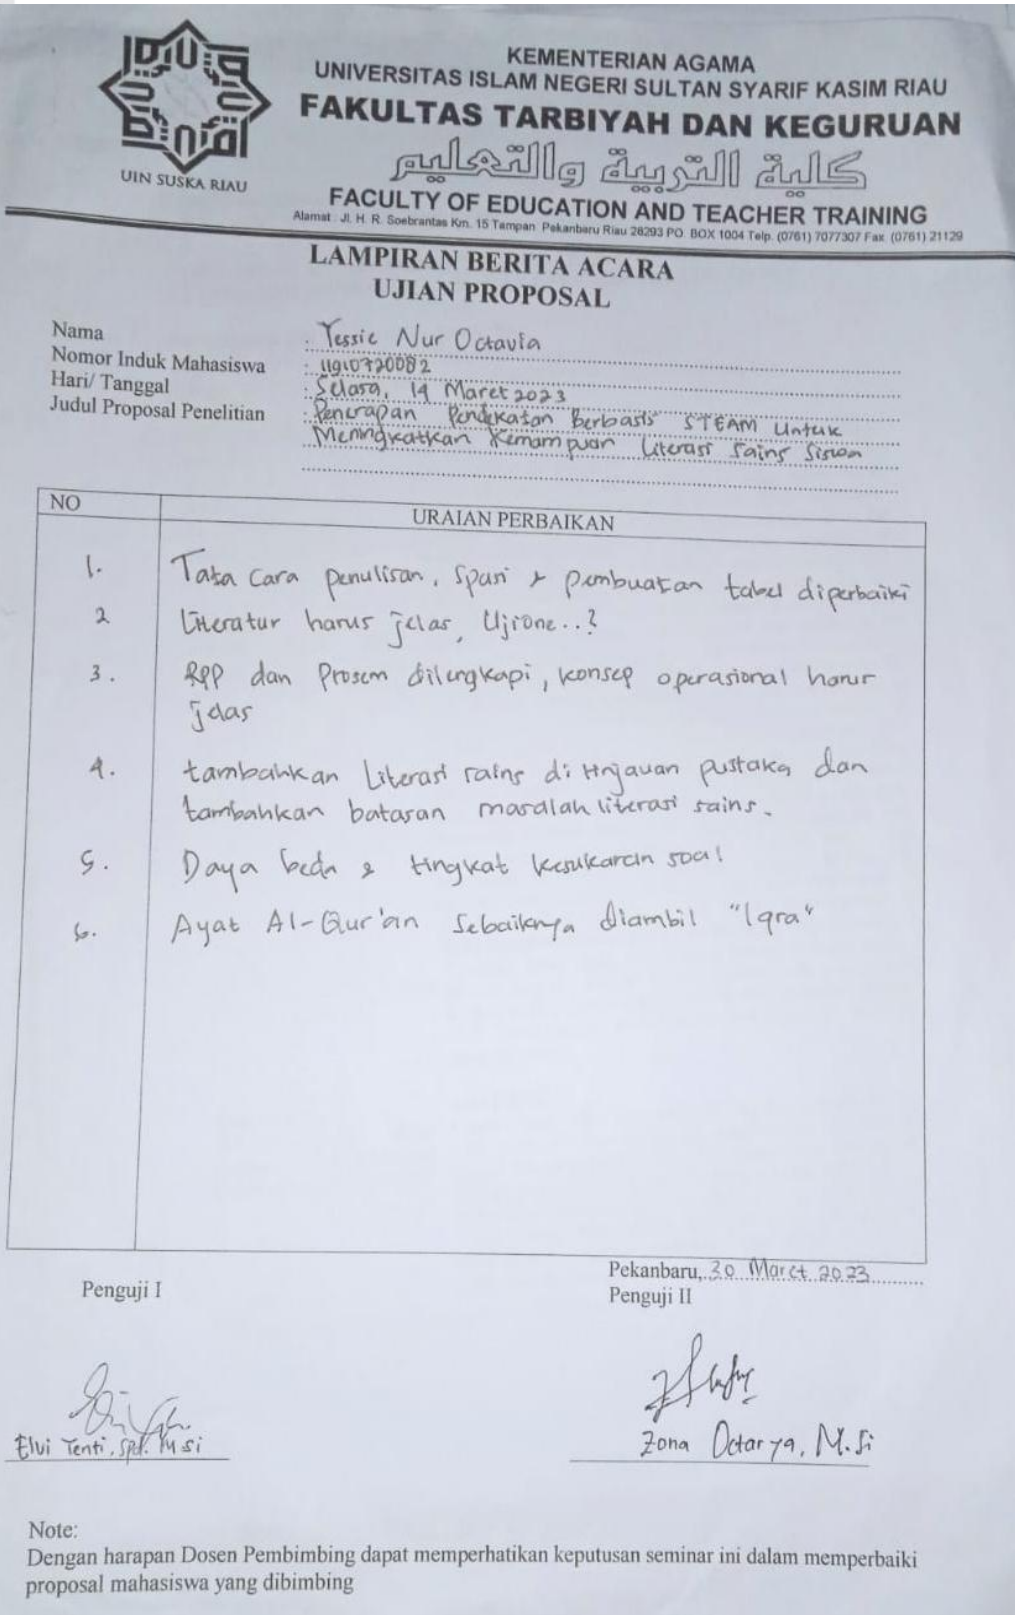 KEMENTERIAN AGAMA
UNIVERSITAS ISLAM NEGERI SULTAN SYARIF KASIM RIAU
FAKULTAS TARBIYAH DAN KEGURUAN
كلية التربية والتعليم
FACULTY OF EDUCATION AND TEACHER TRAINING
Alamat : Jl. H. R. Soebrantas Km. 15 Tampan Pekanbaru Riau 28293 PO. BOX 1004 Telp. (0761) 7077307 Fax. (0761) 21129
UIN SUSKA RIAU
LAMPIRAN BERITA ACARA
UJIAN PROPOSAL
Nama : Yessie Nur Octavia
Nomor Induk Mahasiswa : 11910720082
Hari/ Tanggal : Selasa, 14 Maret 2023
Judul Proposal Penelitian : Penerapan Pendekatan Berbasis STEAM Untuk
Meningkatkan Kemampuan Literasi Sains Siswa
NO URAIAN PERBAIKAN
1. Tata Cara penulisan, Spasi & pembuatan tabel diperbaiki
2 Literatur harus jelas, Ujione..?
3. RPP dan Prosem dilengkapi, konsep operasional harus
jelas
4. tambahkan Literasi sains di tinjauan pustaka dan
tambahkan batasan masalah literasi sains.
5. Daya beda & tingkat kesukaran soal
6. Ayat Al-Qur'an Sebaiknya diambil "Iqra"
Pekanbaru, 30 Maret 2023
Penguji I Penguji II
Elvi Yenti, Spd. M si Zona Octarya, M.Si
Note:
Dengan harapan Dosen Pembimbing dapat memperhatikan keputusan seminar ini dalam memperbaiki
proposal mahasiswa yang dibimbing